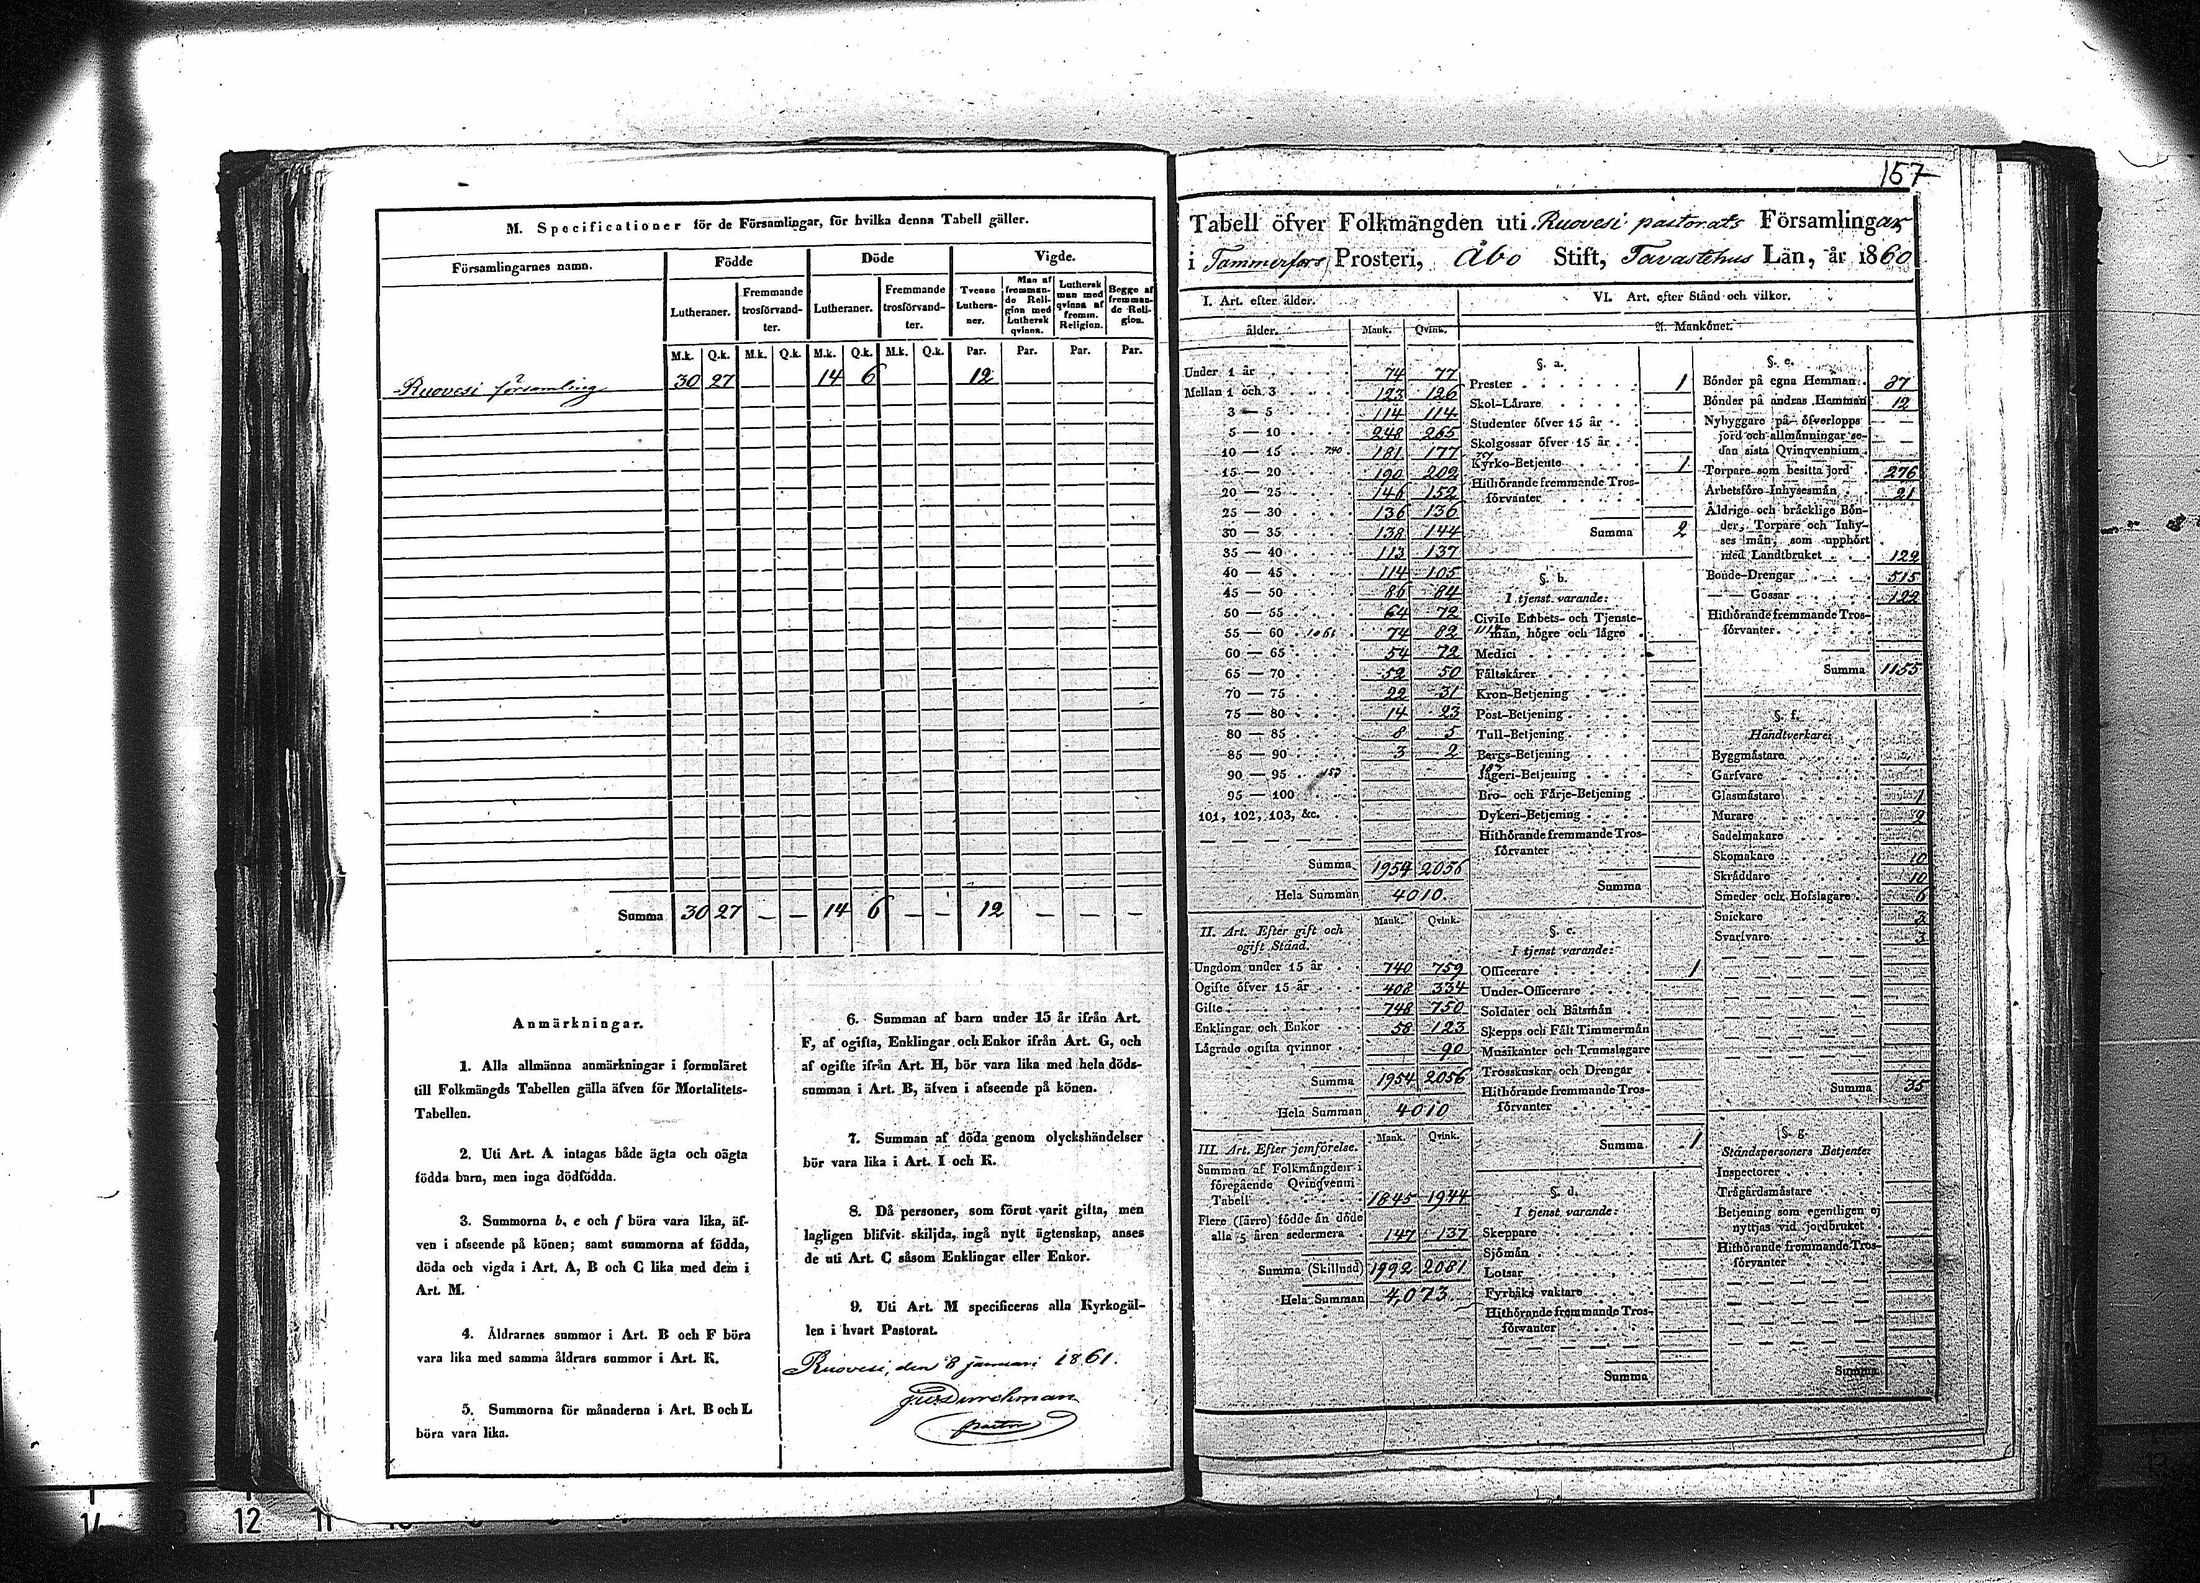 M. Specificationer för de Församlingar, för hvilka denna Tabell gäller.
Församlingarnes namn.
Födde
Döde
Vigde.
Lutheraner.
Fremmande trosförvandter.
Lutheraner.
Fremmande trosförvandter.
Tvenne Lutheraner.
Man af fremmande Religion med Luthersk qvinna.
Luthersk man med qvinna af fremm. Religion.
Begge af fremmande Religion.
M.k. Q.k. M.k. Q.k. M.k. Q.k. M.k. Q.k. Par. Par. Par. Par.
Ruovesi församling 30 27 14 6 12
Summa 30 27 — — 14 6 — — 12 — — —
Anmärkningar.
1. Alla allmänna anmärkningar i formuläret
till Folkmängds Tabellen gälla äfven för Mortalitets-
Tabellen.
2. Uti Art. A intagas både ägta och oägta
födda barn, men inga dödfödda.
3. Summorna b, e och f böra vara lika, äf-
ven i afseende på könen; samt summorna af födda,
döda och vigda i Art. A, B och C lika med dem i
Art. M.
4. Åldrarnes summor i Art. B och F böra
vara lika med samma åldrars summor i Art. K.
5. Summorna för månaderna i Art. B och L
böra vara lika.
6. Summan af barn under 15 år ifrån Art.
F, af ogifta, Enklingar och Enkor ifrån Art. G, och
af ogifte ifrån Art. H, bör vara lika med hela döds-
summan i Art. B, äfven i afseende på könen.
7. Summan af döda genom olyckshändelser
bör vara lika i Art. I och K.
8. Då personer, som förut varit gifta, men
lagligen blifvit skiljda, ingå nytt ägtenskap, anses
de uti Art. C såsom Enklingar eller Enkor.
9. Uti Art. M specificeras alla Kyrkogäl-
len i hvart Pastorat.
Ruovesi, den 8 januari 1861.
pastor
157
Tabell öfver Folkmängden uti Ruovesi pastorats Församlingar
i Tammerfors Prosteri, Åbo Stift, Tavastehus Län, år 1860
I. Art. efter ålder.
ålder. Mank. Qvink.
Under 1 år 74 77
Mellan 1 och 3 123 126
3 — 5 114 114
5 — 10 248 265
10 — 15 740 181 177
15 — 20 190 202
20 — 25 146 152
25 — 30 136 136
30 — 35 138 144
35 — 40 113 137
40 — 45 114 105
45 — 50 86 84
50 — 55 64 72
55 — 60 1061 74 82
60 — 65 54 72
65 — 70 52 50
70 — 75 22 31
75 — 80 14 23
80 — 85 8 5
85 — 90 3 2
90 — 95 153
95 — 100
101, 102, 103, &c.
Summa 1954 2056
Hela Summan 4010.
II. Art. Efter gift och
ogift Stånd.
Mank. Qvink.
Ungdom under 15 år 740 759
Ogifte öfver 15 år 408 334
Gifte 748 750
Enklingar och Enkor 58 123
Lägrade ogifta qvinnor 90
Summa 1954 2056
Hela Summan 4010
III. Art. Efter jemförelse. Mank. Qvink.
Summan af Folkmängden i
föregående Qvinqvenni
Tabell 1845 1944
Flere (färre) födde än döde
alla 5 åren sedermera 147 137
Summa (Skillnad) 1992 2081
Hela Summan 4,073.
VI. Art. efter Stånd och vilkor.
A. Mankönet.
§. a.
Prester 1
Skol-Lärare
Studenter öfver 15 år
Skolgossar öfver 15 år
Kyrko-Betjente 1
Hithörande fremmande Tros-
förvanter
Summa 2
§. b.
I tjenst varande:
Civile Embets- och Tjenste-
män, högre och lägre
Medici
Fältskärer
Kron-Betjening
Post-Betjening
Tull-Betjening
Bergs-Betjening
Jägeri-Betjening
Bro- och Färje-Betjening
Dykeri-Betjening
Hithörande fremmande Tros-
förvanter
Summa
§. c.
I tjenst varande:
Officerare 1
Under-Officerare
Soldater och Båtsmän
Skepps och Fält Timmermän
Musikanter och Trumslagare
Trosskuskar och Drengar
Hithörande fremmande Tros-
förvanter
Summa 1
§. d.
I tjenst varande:
Skeppare
Sjömän
Lotsar
Fyrbåks vaktare
Hithörande fremmande Tros-
förvanter
Summa
§. e.
Bönder på egna Hemman 87
Bönder på andras Hemman 12
Nybyggare på öfverlopps
jord och allmänningar se-
dan sista Qvinqvennium
Torpare som besitta jord 276
Arbetsföre Inhysesmän 21
Åldrige och bräcklige Bön-
der, Torpare och Inhy-
ses män, som upphört
med Landtbruket 122
Bonde-Drengar 515
— Gossar 122
Hithörande fremmande Tros-
förvanter
Summa 1155
§. f.
Handtverkare:
Byggmästare
Garfvare
Glasmästare 1
Murare 2
Sadelmakare
Skomakare 10
Skräddare 10
Smeder och Hofslagare 6
Snickare 3
Svarfvare 3
Summa 35
§. g.
Ståndspersoners Betjente:
Inspectorer
Trägårdsmästare
Betjening som egentligen ej
nyttjas vid jordbruket
Hithörande fremmande Tros-
förvanter
Summa
12 11